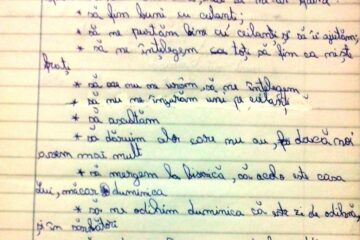 * să fim buni cu ceilanți;
* să ne purtăm bine cu ceilanți și să-i ajutăm;
* să ne înțelegem ca toți să fim ca niște
frați
* să nu ne urâm, să ne înțelegem
* să nu ne înjurăm unii pe ceilanți
* să ascultăm
* să dăruim celor care nu au, dacă noi
avem mai mult
* să mergem la biserică, căci acolo este casa
lui, măcar duminica
* să ne odihnim duminica că este zi de odihnă,
și în sărbători